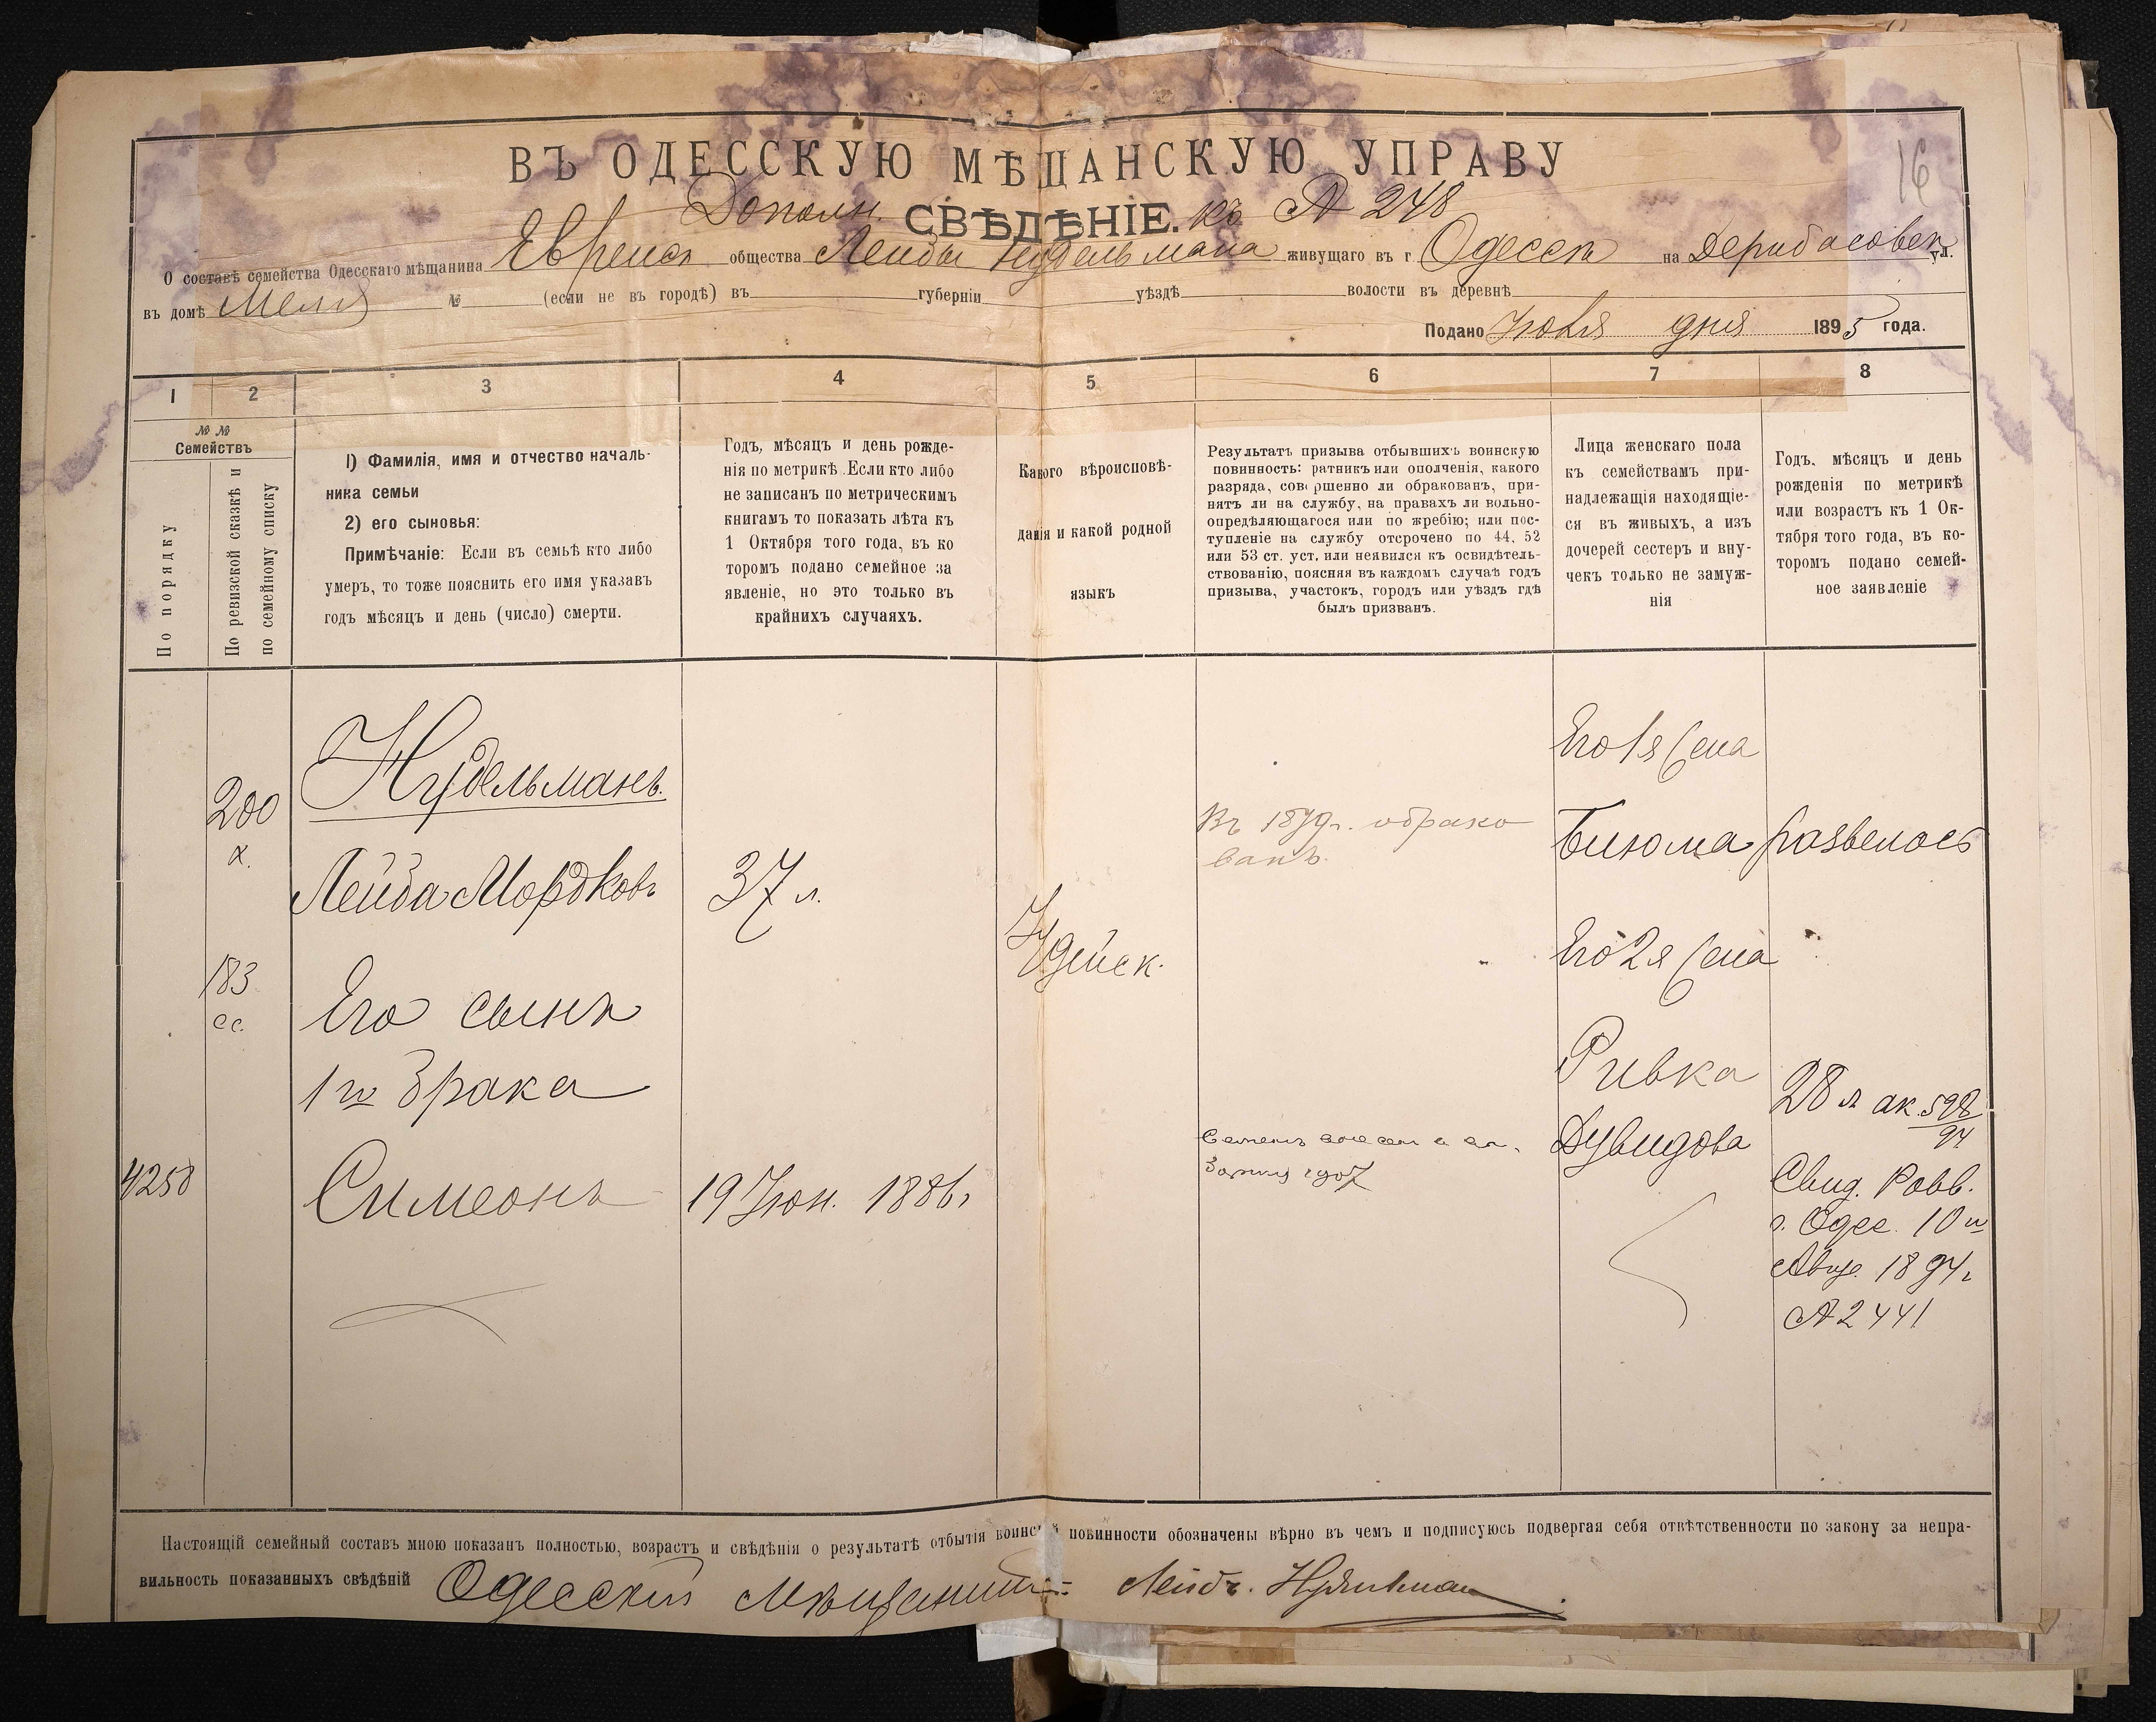 16
ВЪ ОДЕССКУЮ МѢЩАНСКУЮ УПРАВУ
Дополн. СВѢДѢНІЕ. къ № 248
О составѣ семейства Одесскаго мѣщанина Еврейск общества Лейбы Нудельмана живущаго въ г Одессѣ на Дерибасовск ул.
въ домѣ № (если не въ городѣ) въ губерніи уѣздѣ волости въ деревнѣ
Подано Іюля дня 1895 года.
1 2 3 4 5 6 7 8
№ №
Семействъ
По порядку
По ревизской сказкѣ и
по семейному списку
1) Фамилія, имя и отчество началь-
ника семьи
2) его сыновья:
Примѣчаніе: Если въ семьѣ кто либо
умеръ, то тоже пояснить его имя указавъ
годъ мѣсяцъ и день (число) смерти.
Годъ, мѣсяцъ и день рожде-
нія по метрикѣ. Если кто либо
не записанъ по метрическимъ
книгамъ то показать лѣта къ
1 Октября того года, въ ко
торомъ подано семейное за
явленіе, но это только въ
крайнихъ случаяхъ.
Какого вѣроисповѣ-
данія и какой родной
языкъ
Результатъ призыва отбывшихъ воинскую
повинность: ратникъ или ополченія, какого
разряда, совершенно ли обракованъ, при-
нятъ ли на службу, на правахъ ли вольно-
опредѣляющагося или по жребію; или пос-
тупленіе на службу отсрочено по 44, 52
или 53 ст. уст. или неявился къ освидѣтель-
ствованію, поясняя въ каждомъ случаѣ годъ
призыва, участокъ, городъ или уѣздъ гдѣ
былъ призванъ.
Лица женскаго пола
къ семействамъ при-
надлежащія находящіе-
ся въ живыхъ, а изъ
дочерей сестеръ и вну-
чекъ только не замуж-
нія
Годъ, мѣсяцъ и день
рожденія по метрикѣ
или возрастъ къ 1 Ок-
тября того года, въ ко-
торомъ подано семей-
ное заявленіе
200
183
4258
Нудельманъ.
Лейба Мордковъ
Его сынъ
1го брака
Симеонъ
37 л.
19 Іюн. 1886г
Іудейск.
Въ 1879г. обрако
ванъ.
1907
Его 1я жена
Бисюма развелась
Его 2я жена
Ривка
Дувидова
28 л ак. 598/94
Свид. Равв.
г. Одес. 10го
Авг. 1894г
№ 2441
Настоящій семейный составъ мною показанъ полностью, возрастъ и свѣдѣнія о результатѣ отбытія воинской повинности обозначены вѣрно въ чемъ и подписуюсь подвергая себя отвѣтственности по закону за непра-
вильность показанныхъ свѣдѣній Одесскій Мѣщанинъ Лейба Нудельман